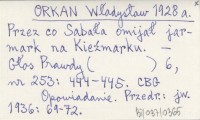 ORKAN Władysław 1928 a.
Przez co Sabała omijał jar-
mark na Kieżmarku. —
Głos Prawdy ( ) 6,
nr 253: 444-445. CBG
Opowiadanie. Przedr.: jw.
1936: 69-72.
51087/0365